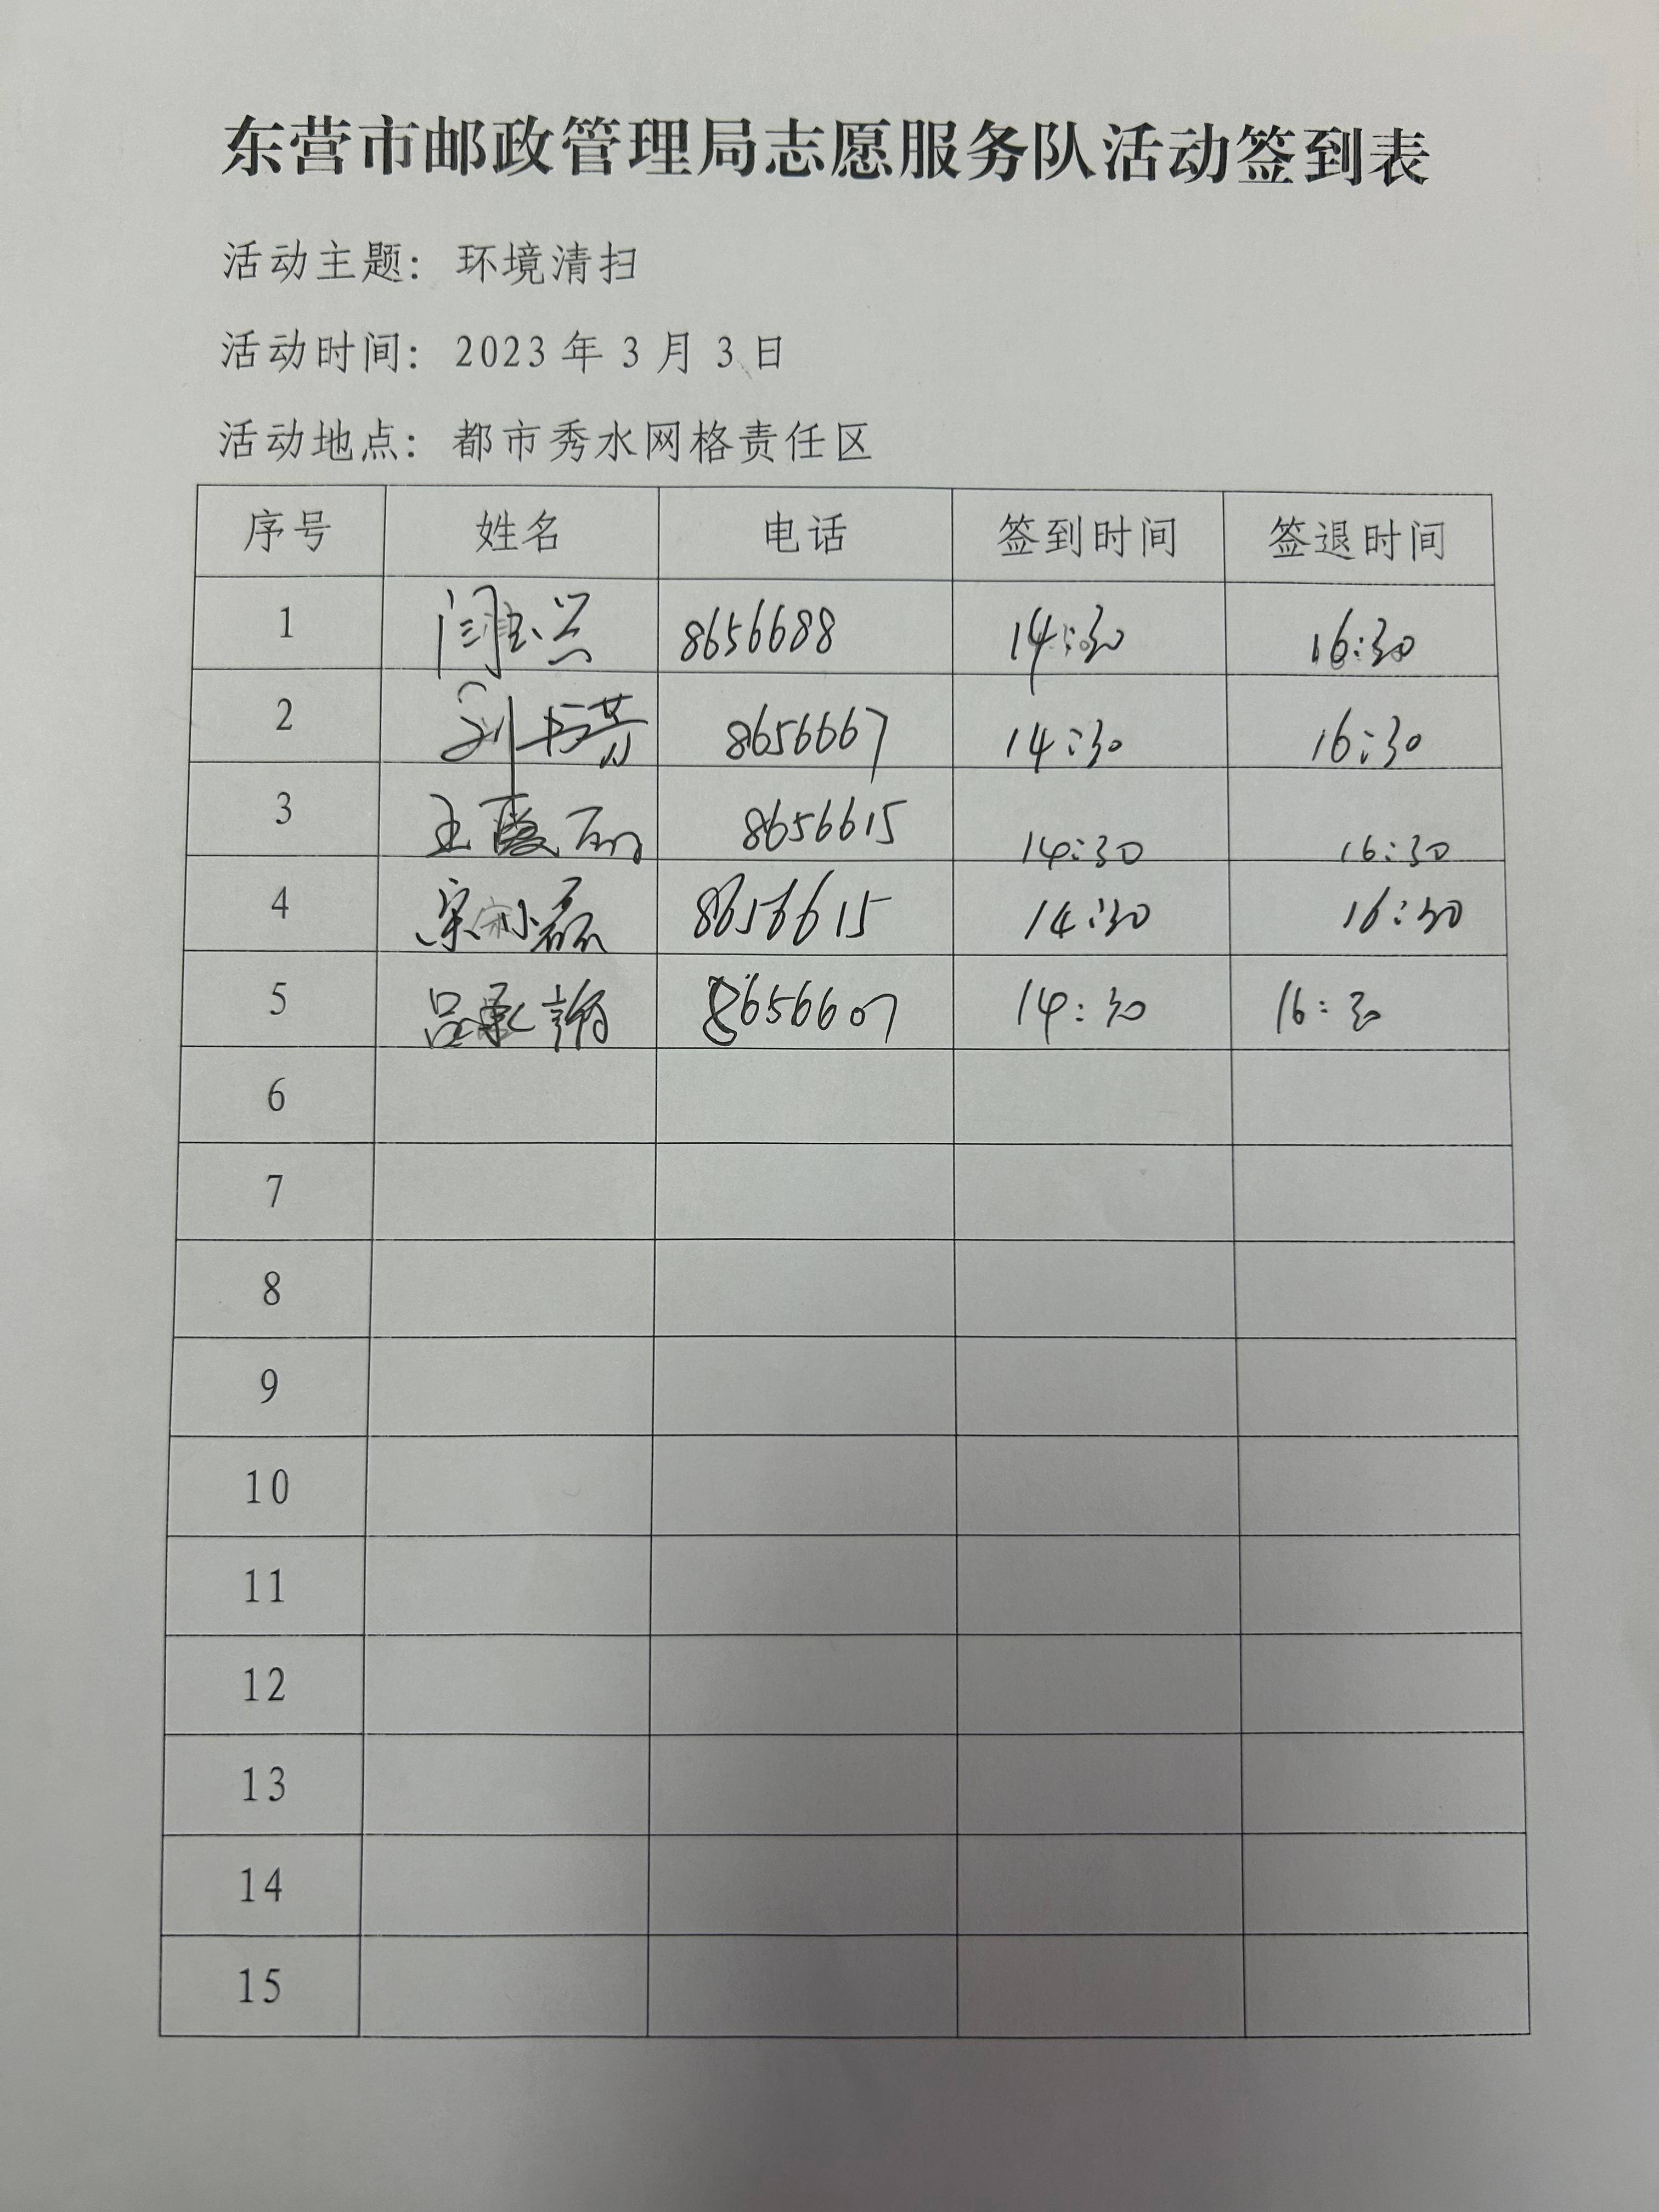 东营市邮政管理局志愿服务队活动签到表
活动主题：环境清扫
活动时间：2023年3月3日
活动地点：都市秀水网格责任区
序号 姓名 电话 签到时间 签退时间
1 闫 8656688 14:30 16:30
2 刘书芳 8656667 14:30 16:30
3 王霞丽 8656615 14:30 16:30
4 宋小磊 8656615 14:30 16:30
5 吕承翰 8656607 14:30 16:30
6
7
8
9
10
11
12
13
14
15